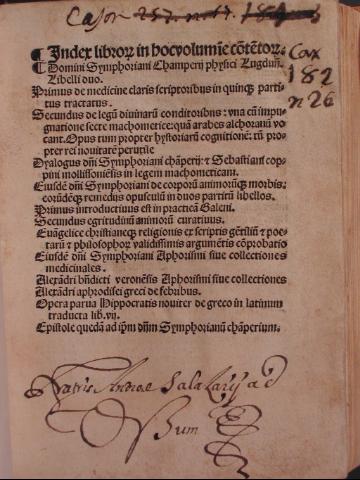 Cajon 257. n. 17. 184
Cax
182
n 26
¶ Index libroꝝ in hoc volumīe cōtētoꝝ.
¶ Domini Symphoriani Champerij physici Lugduñ.
Libelli duo.
Primus de medicine claris scriptoribus in quinqꝫ parti-
tus tractatus.
Secundus de legū diuinarū conditoribus: vna cū impu-
gnatione secte machometice: quā arabes alchoranū vo-
cant. Opus tum propter hystoriarū cognitionē: tū pro-
pter rei nouitatē perutile
Dyalogus dñi Symphoriani chāperij: ⁊ Sebastiani cop-
pini mollissoniēsis in legem machometicam.
Eiusdē dñi Symphoriani de corporū animorūqꝫ morbis:
eorūdēqꝫ remedijs opusculū in duos partitū libellos.
Primus introductiuus est in practicā Galeni.
Secundus egritudinū animorū curatiuus.
Euāgelice christianeqꝫ religionis ex scriptis gētiliū ⁊ poe-
tarū ⁊ philosophoꝝ validissimis argumētis cōprobatio
Eiusdē dñi Symphoriani Aphorismi siue collectiones
medicinales.
Alexādri bn̄dicti veronēsis Aphorismi siue collectiones
Alexādri aphrodisei greci de febribus.
Opera parua Hippocratis nouiter de greco in latinum
traducta lib. vij.
Epistole quedā ad ip̄m dñm Symphorianū chāperium.
Fatris Andreae Salazarij ad
Vsum